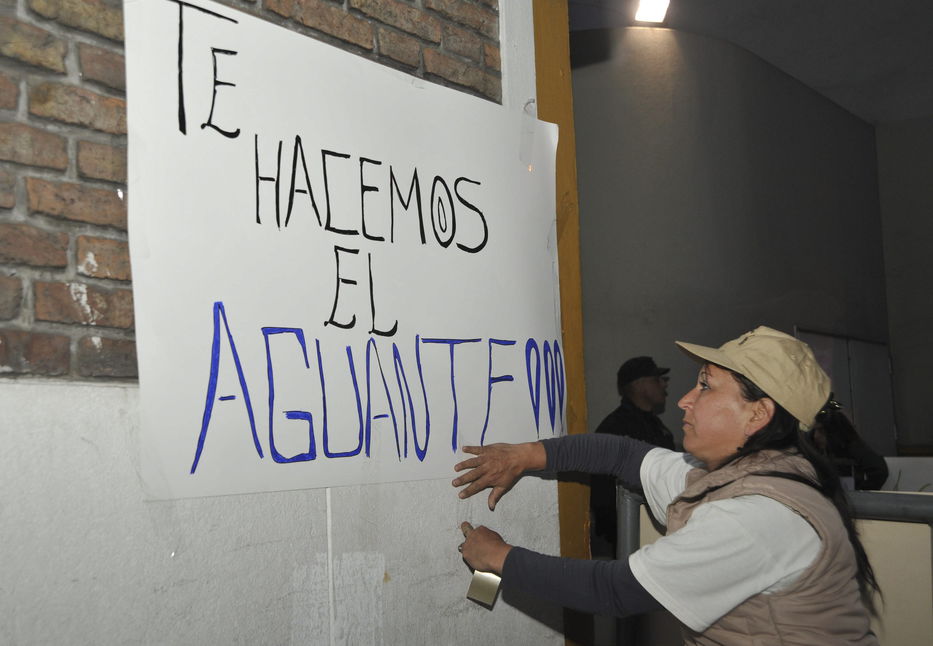 TE
HACEMOS
EL
AGUANTE!!!